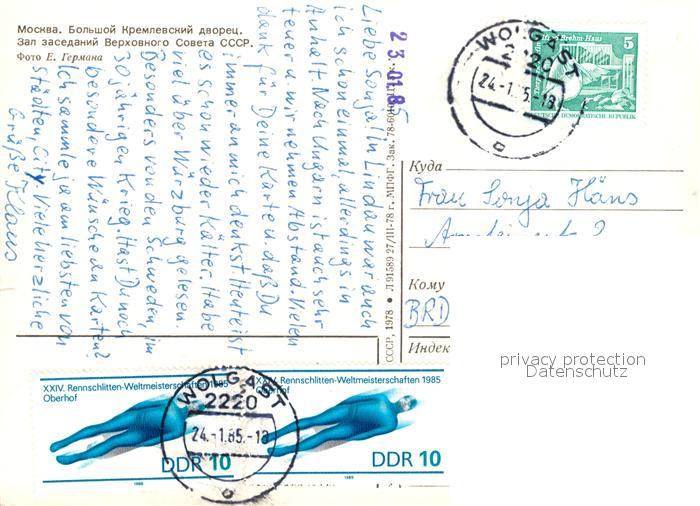 Москва. Большой Кремлевский дворец.
Зал заседаний Верховного Совета СССР.
Фото Е. Германа
Liebe Sonja! In Lindau war auch
ich schon einmal, allerdings in
Anhalt. Nach Ungarn ist auch sehr
teuer u. wir nehmen Abstand. Vielen
dank für Deine Karten u. daß Du
immer an mich denkst. Heute ist
es schon wieder kälter. Habe
viel über Würzburg gelesen.
Besonders von den Schweden, im
30 jährigen Krieg. Hast Du noch
besondere Wünsche an Karten?
Ich sammle ja am liebsten von
Städten, City. Viele herzliche
Grüße Klaus
23.01.85
СССР, 1978 • Л 91589 27/III-78 г. МПФГ. Зак. 78-60
WOLGAST
2220
24.-1.85.-18
Brehm-Haus
5
DEUTSCHE DEMOKRATISCHE REPUBLIK
Куда
Frau Sonja Häns
Кому
BRD
Индек
privacy protection
Datenschutz
XXIV. Rennschlitten-Weltmeisterschaften 1985
Oberhof
DDR 10
1985
XXIV. Rennschlitten-Weltmeisterschaften 1985
Oberhof
DDR 10
1985
WOLGAST
2220
24.-1.85.-18